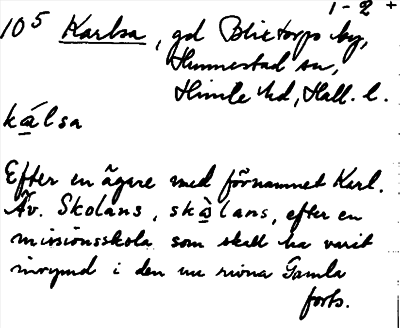 1-2 +
10⁵ Karlsa, gd Blixtorps by,
Hunnestad sn,
Himle hd, Hall. l.
kálsa
Efter en ägare med förnamnet Karl.
Äv. Skolans, skàlans, efter en
missionsskola som skall ha varit
inrymd i den nu rivna Gamla
forts.